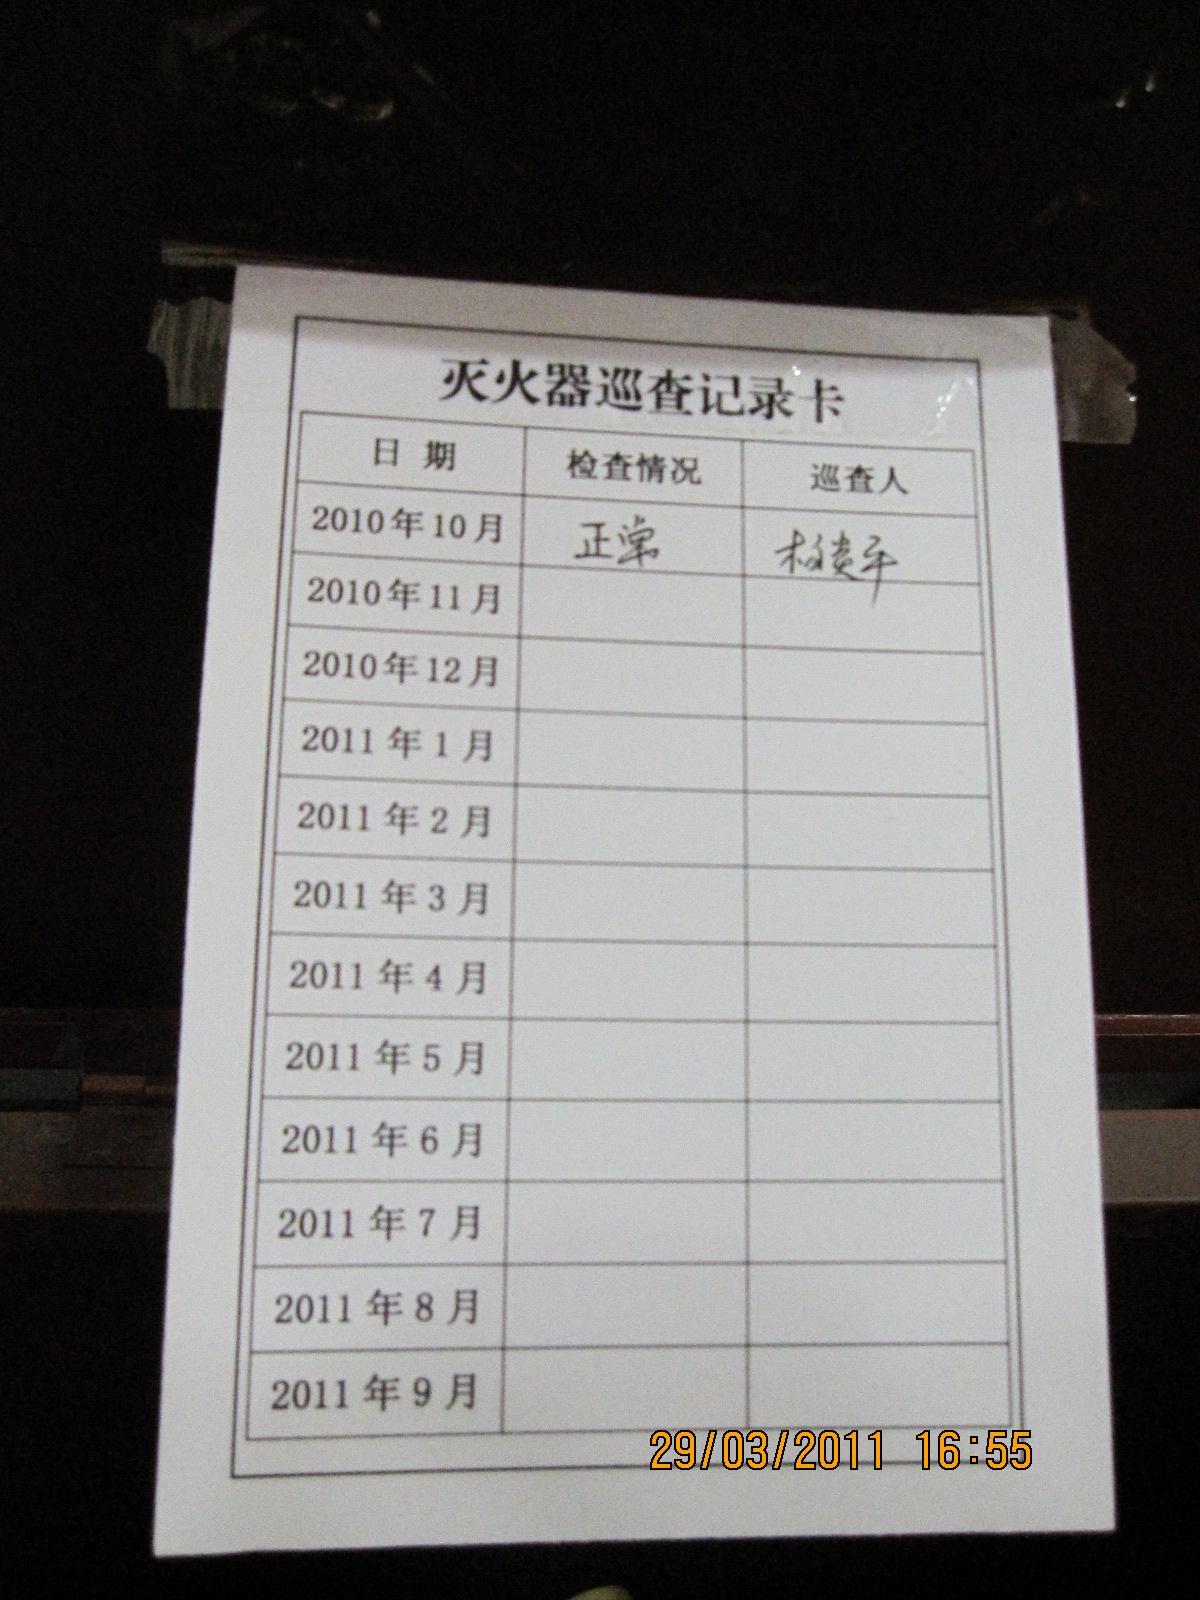 灭火器巡查记录卡
日 期 检查情况 巡查人
2010年10月 正常
2010年11月
2010年12月
2011年1月
2011年2月
2011年3月
2011年4月
2011年5月
2011年6月
2011年7月
2011年8月
2011年9月
29/03/2011 16:55